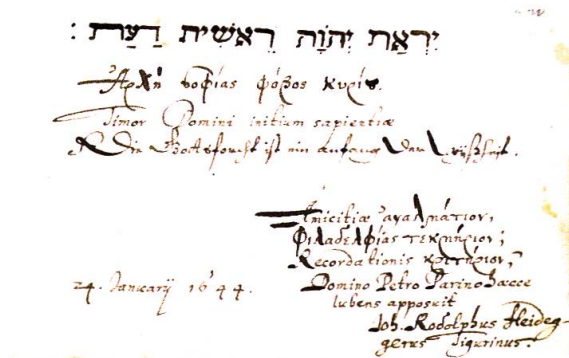 יִרְאַת יְהוָֹה רֵאשִׁית דַּעַת :
Ἀρχὴ σοφίας φόβος κυρίȣ.
Timor Domini initium sapientiæ
Die Gottsforcht ist ein anfang der Wyßheit.
Amicitiæ ἀγαλμάτιον,
Φιλαδελφίας τεκμήριον;
Recordationis κριτήριον,
24. Januarij 1644.
Domino Petro Parino haece
lubens apposuit
Joh. Rodolphus Heideg-
gerus Tigurinus.